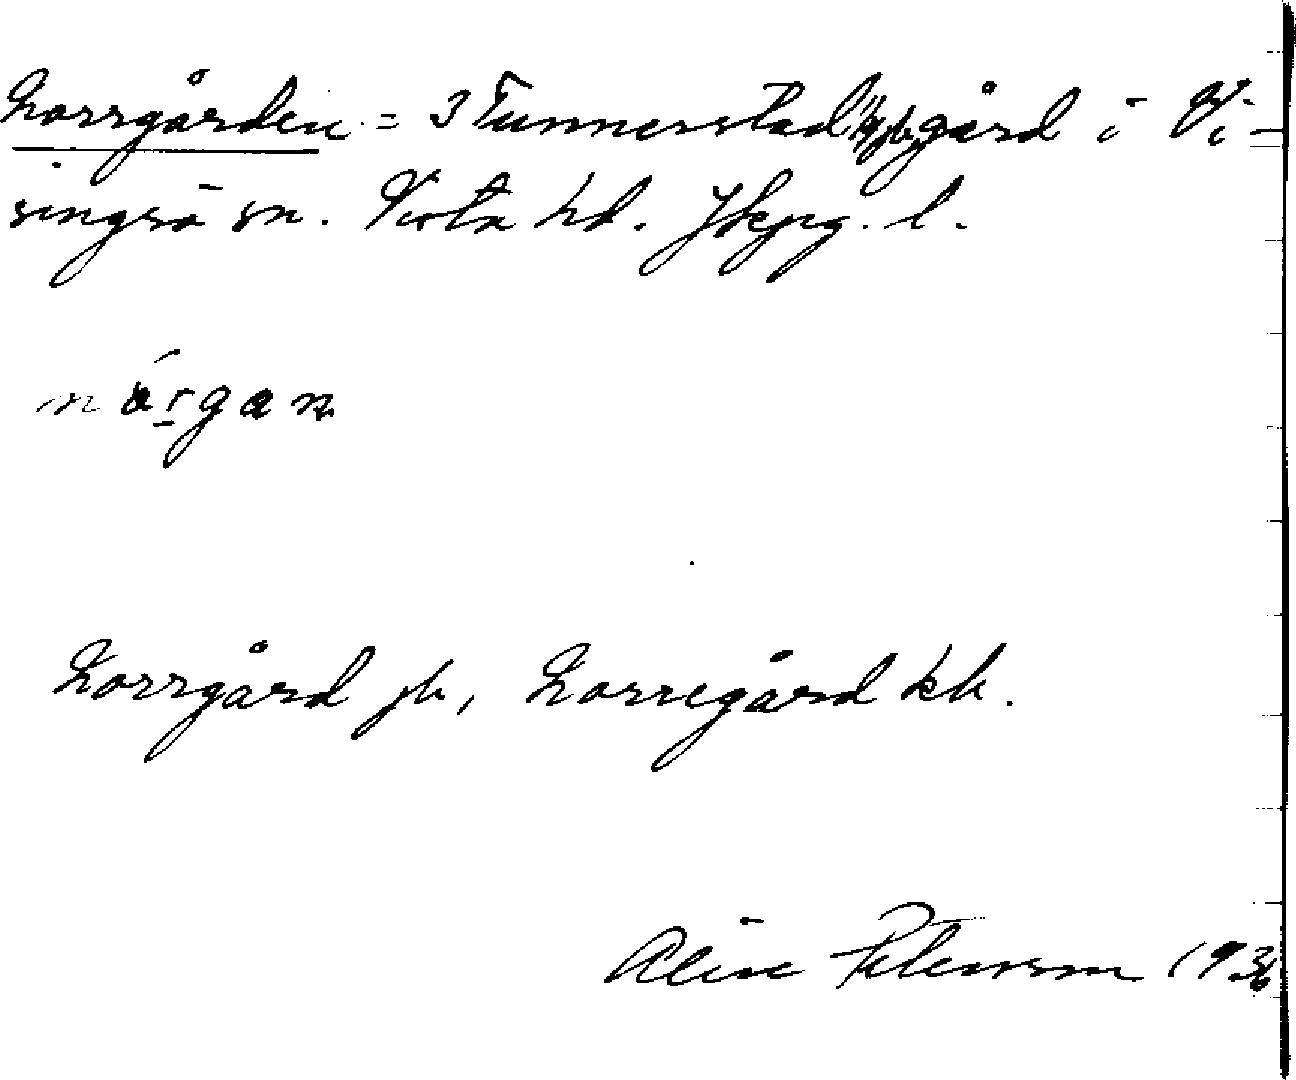 Norrgården = 3 Tunnerstad 1/4 jb, gård i Vi-
singsö sn. Vista hd. Jkpg. l.
nårgan
Norrgård jb, Norregård kb.
Alice Petersson 1936